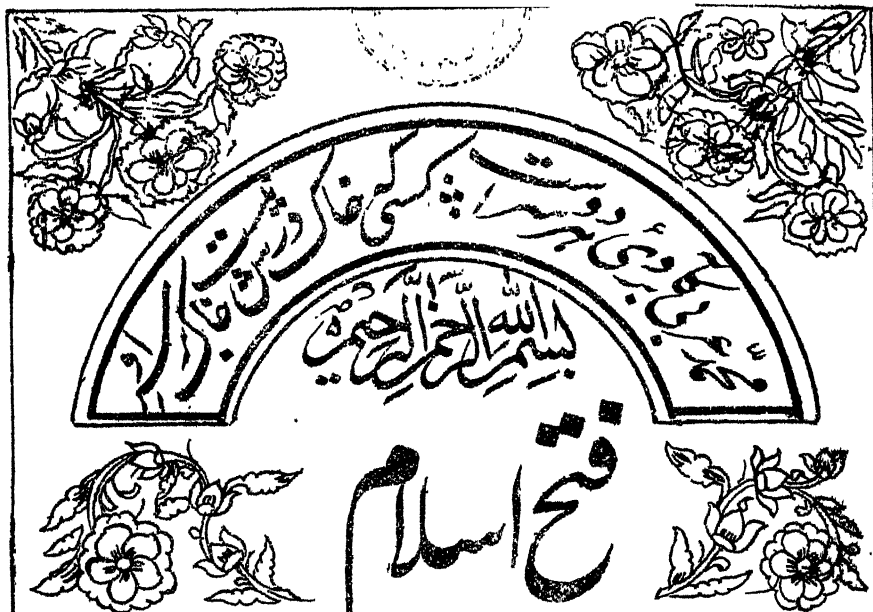 محمد عربی کابروئے ہر دو سراست کسی کہ خاک درش نیست خاک بر سر او
بسم الله الرحمن الرحيم
فتح اسلام